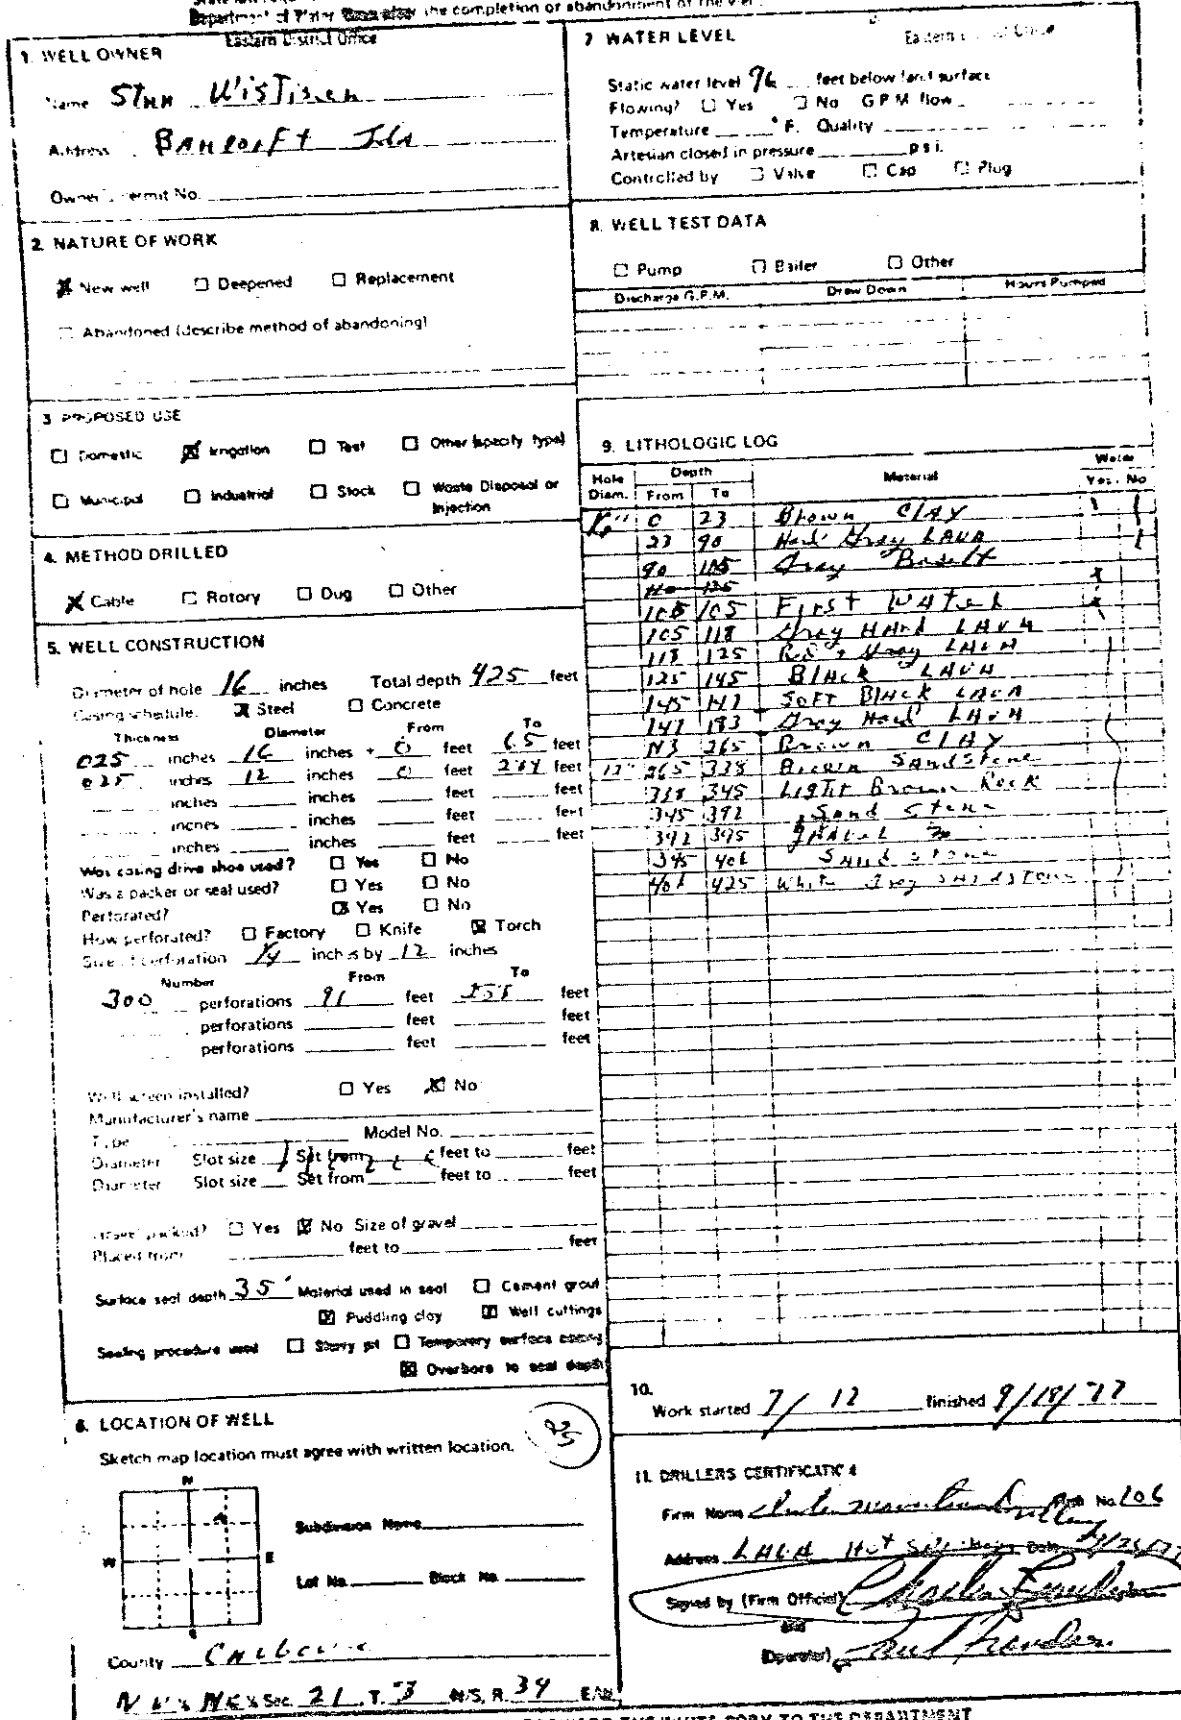 the completion or abandonment of the
Department of Water
Eastern District Office
1. WELL OWNER
Name STAN
Address BANCROFT Ida
Owner's Permit No.
2. NATURE OF WORK
New well Deepened Replacement
Abandoned (describe method of abandoning)
3. PROPOSED USE
Domestic Irrigation Test Other (specify type)
Municipal Industrial Stock Waste Disposal or
Injection
4. METHOD DRILLED
Cable Rotory Dug Other
5. WELL CONSTRUCTION
Diameter of hole 16 inches Total depth 425 feet
Casing schedule: Steel Concrete
Thickness Diameter From To
025 inches 16 inches + 0 feet 65 feet
025 inches 12 inches 0 feet feet
inches inches feet feet
inches inches feet feet
inches inches feet feet
Was casing drive shoe used? Yes No
Was a packer or seal used? Yes No
Perforated? Yes No
How perforated? Factory Knife Torch
Size of perforation 1/4 inches by 12 inches
Number From To
300 perforations 91 feet 258 feet
perforations feet feet
perforations feet feet
Well screen installed? Yes No
Manufacturer's name
Type Model No.
Diameter Slot size Set from feet to feet
Diameter Slot size Set from feet to feet
Gravel packed? Yes No Size of gravel
Placed from feet to feet
Surface seal depth 35' Material used in seal Cement grout
Puddling clay Well cuttings
Sealing procedure used Slurry pit Temporary surface casing
Overbore to seal depth
6. LOCATION OF WELL
25
Sketch map location must agree with written location.
N
W E
S
Subdivision Name
Lot No. Block No.
County
NW ¼ NE ¼ Sec. 21 T. 3 N/S, R. 39 E/W
Eastern District Office
7 WATER LEVEL
Static water level 96 feet below land surface
Flowing? Yes No G.P.M. flow
Temperature ° F. Quality
Artesian closed in pressure p.s.i.
Controlled by Valve Cap Plug
8. WELL TEST DATA
Pump Bailer Other
Discharge G.P.M. Draw Down Hours Pumped
9. LITHOLOGIC LOG
Hole Depth Material Water
Diam. From To Yes No
16" 0 23 Brown CLAY
23 90 Hard Gray LAVA
90 105 Gray Basalt
105 105 First Water
105 118 Gray HARD LAVA
118 125 Red & Gray LAVA
125 145 BLACK LAVA
145 147 SOFT BLACK LAVA
147 183 Gray Hard LAVA
183 265 Brown CLAY
12" 265 338 Brown SANDSTONE
338 345 LIGHT Brown Rock
345 392 Sand Stone
392 395
395 406 SAND STONE
406 425 White Gray SANDSTONE
10.
Work started 7/12 finished 9/18/77
11. DRILLERS CERTIFICATION
Firm Name Firm No. 106
Address LAVA Hot Springs Date
Signed by (Firm Official) Charles
and
(Operator)
COPY TO THE DEPARTMENT